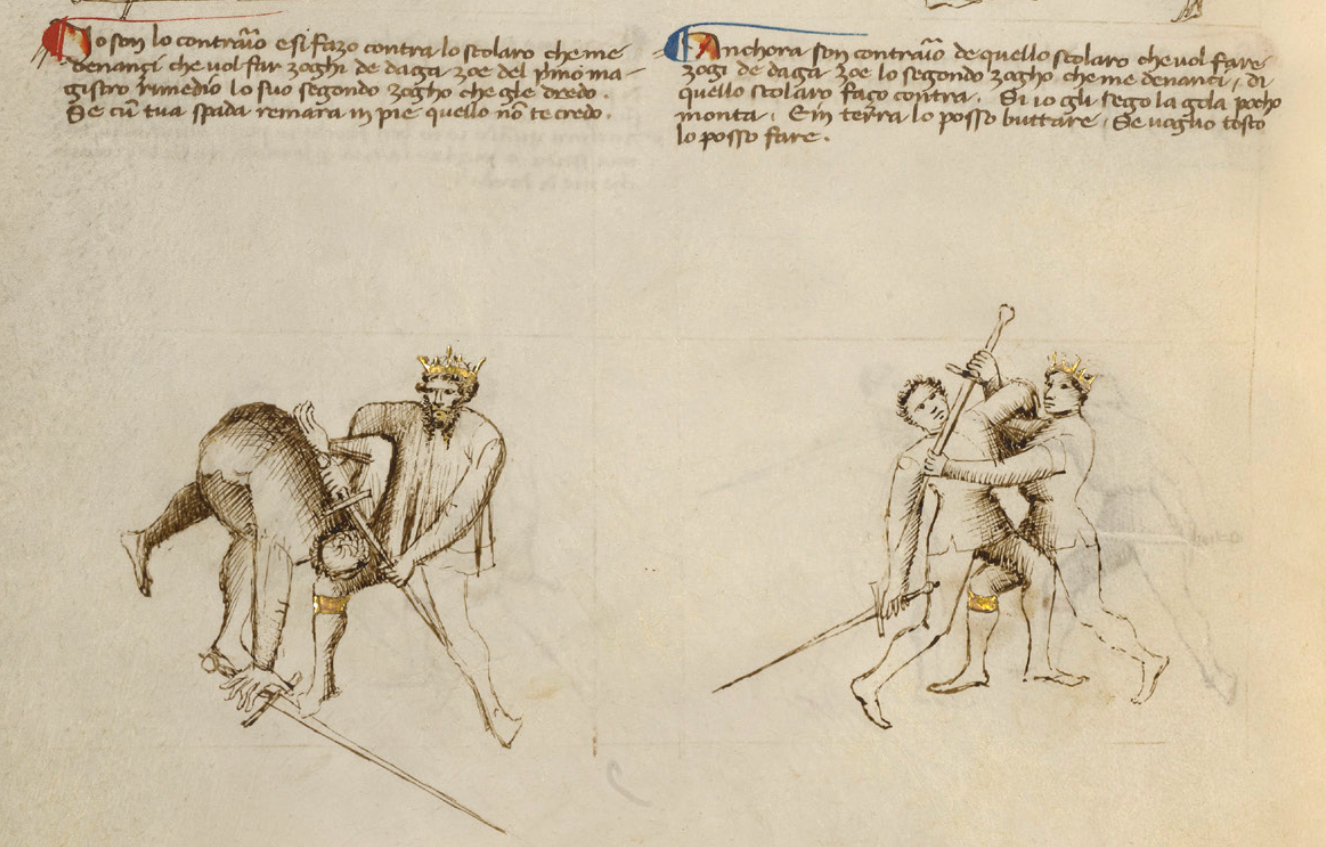 Io son lo contrario e si fazo contra lo scolaro che me
denanzi che vol far zoghi de daga zoe del pimo ma-
gistro rimedio lo suo segondo zogho che gle dredo.
Se cū tua spada remara in pie quello nō te credo.
Anchora son contraūo de quello scolaro che vol fare
zogi de daga zoe lo segondo zogho che me denanci, di
quello scolaro fazo contra. Si io gli sego la gola pocho
monta. E in terra lo posso buttare. Se voglio tosto
lo posso fare.